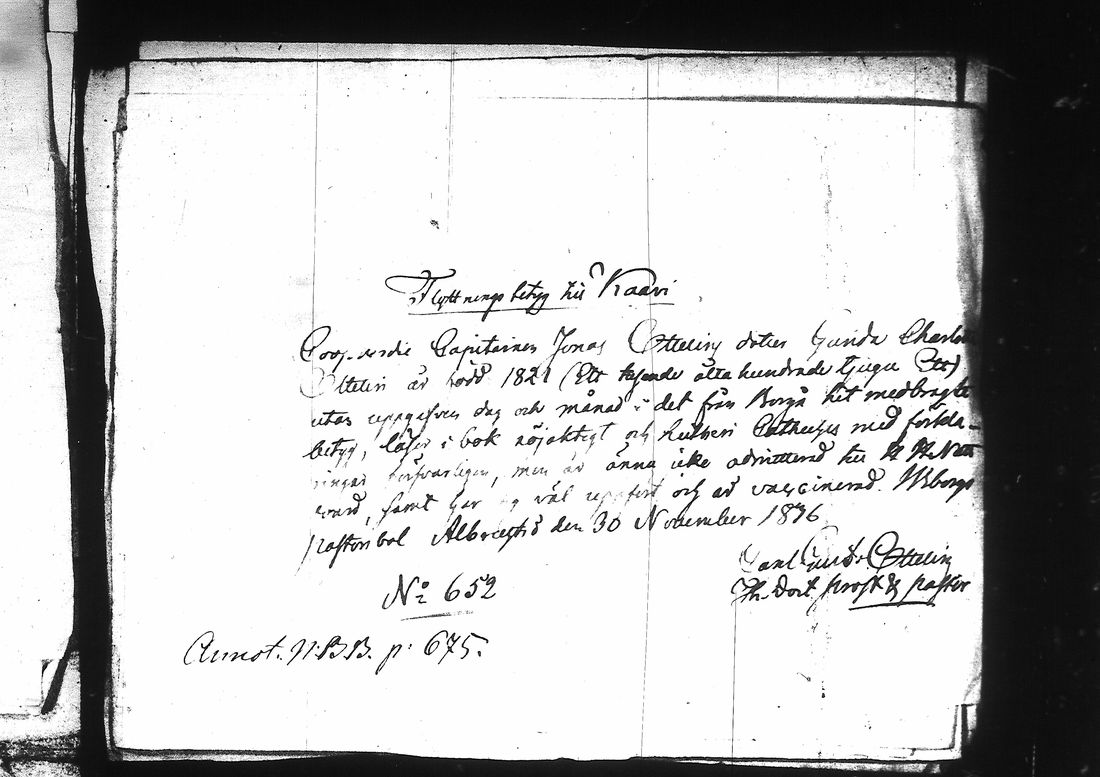 Flyttnings betyg till Kaavi
Coopverdie Capitainen Jonas Ottelins dotter Gunda Charlotta
Ottelin är född 1821 (Ett tusende åtta hundrade tjugu Ett)
utan uppgifven dag och månad i det från Borgå hit medbragte
betyg, läser i bok nöjaktigt och Lutheri Catheches med förkla-
ringar försvarligen, men är änna icke admitterad till H H Natt
vard, samt har sig väl uppfört och är vaccinerad. Wiborgs
pastorsbol Albrectsd den 30 November 1836
Carl Gust. Ottelin
Th. Doct prost & pastor
No 652
Annot. N.B.B. p: 675.